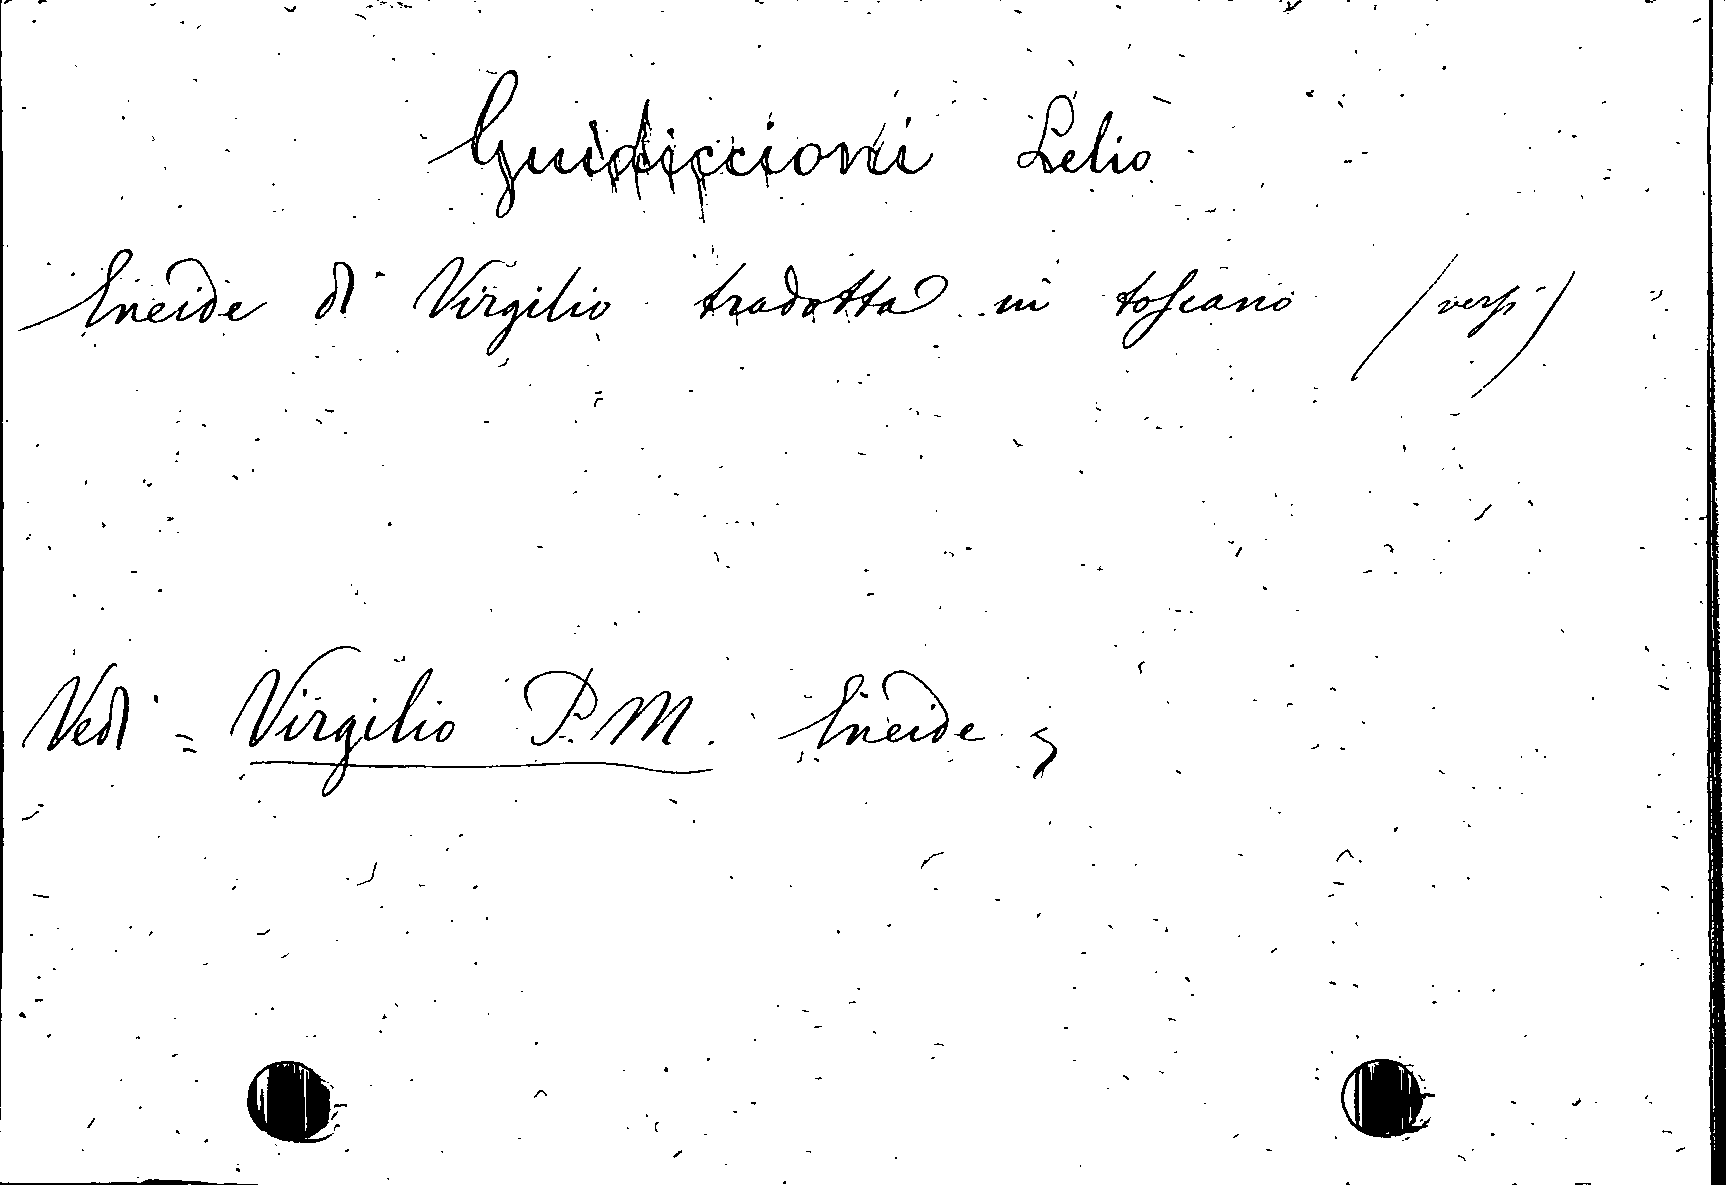 Guidiccioni Lelio
Eneide di Virgilio tradotta in toscano (versi)
Vedi = Virgilio P. M. Eneide